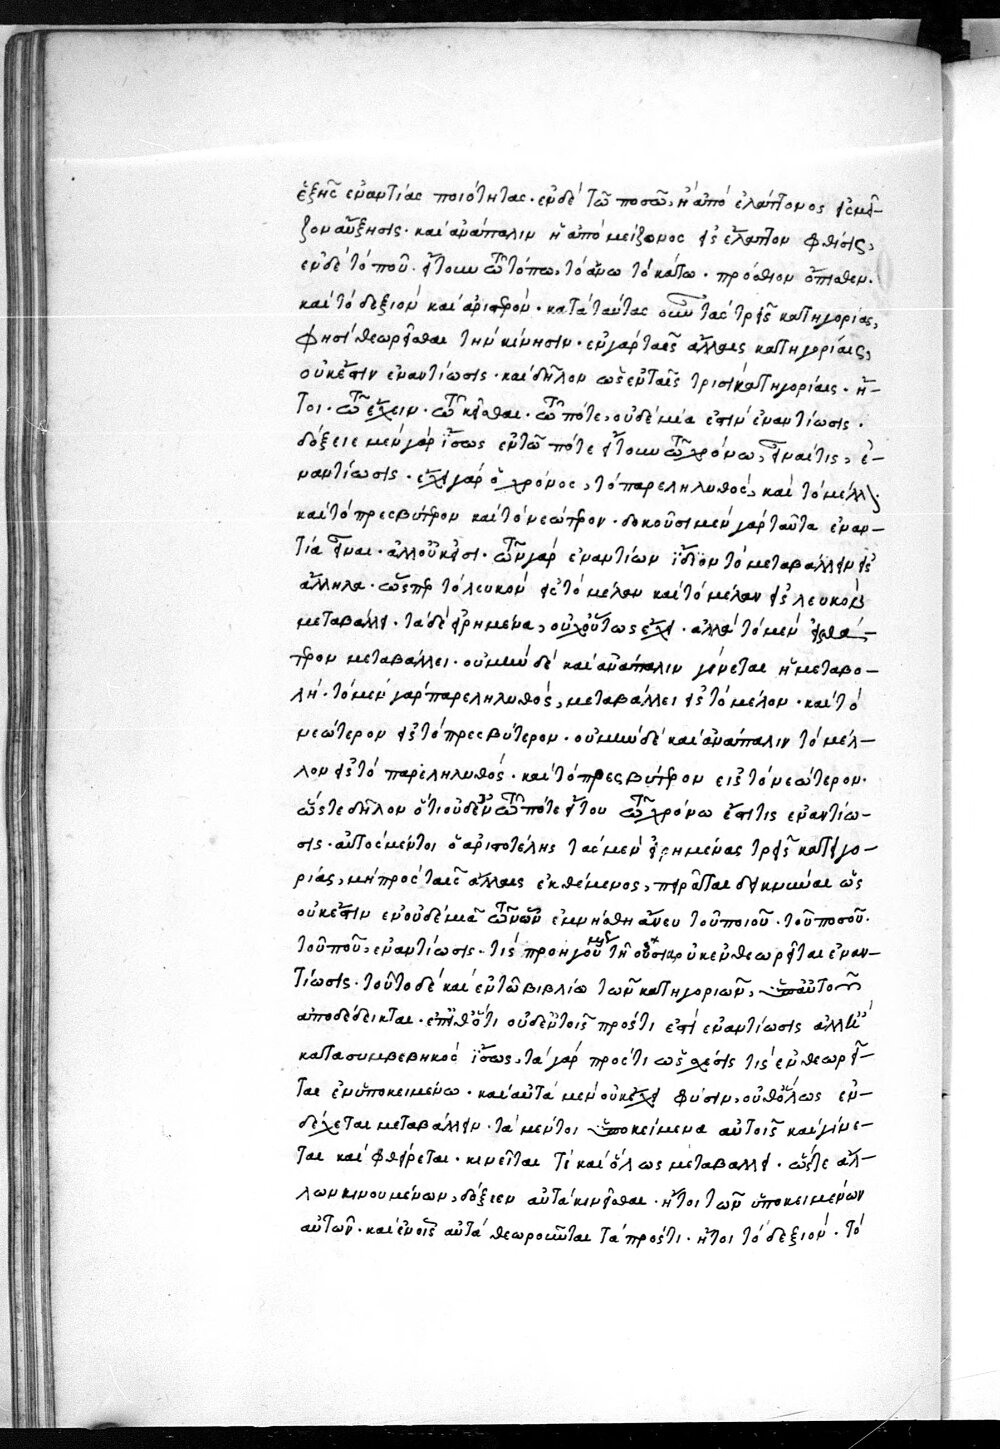 ἑξῆς ἐναντίας ποιότητας· ἐν δὲ τῶ ποσῶ, ἡ ἀπὸ ἐλάττονος εἰς μεῖ-
ζον αὔξησις· καὶ ἀνάπαλιν ἡ ἀπὸ μείζονος εἰς ἔλαττον φθίσις,
ἐν δὲ τὸ ποῦ· ἤτοι ἐν τῶ τόπω, τὸ ἄνω τὸ κάτω· πρόσθιον ὄπισθεν·
καὶ τὸ δεξιὸν καὶ ἀριστερόν· κατὰ ταύτας οὖν τὰς τρεῖς κατηγορίας,
φησὶ θεωρεῖσθαι τὴν κίνησιν· ἐν γὰρ ταῖς ἄλλαις κατηγορίαις,
οὐκ ἔστιν ἐναντίωσις· καὶ δῆλον ὡς ἐν ταῖς τρισὶ κατηγορίαις· ἤ-
τοι· τῶ ἔχειν· τῶ κεῖσθαι· τῶ πότε, οὐδεμία ἐστὶν ἐναντίωσις·
δόξειε μὲν γὰρ ἴσως ἐν τῶ πότε ἤτοι τῶ χρόνω, εἶναί τις, ἐ-
ναντίωσις· ἔχει γὰρ ὁ χρόνος, τὸ παρεληλυθὸς, καὶ τὸ μέλλον·
καὶ τὸ πρεσβύτερον καὶ τὸ νεώτερον· δοκοῦσι μὲν γὰρ ταῦτα ἐναν-
τία εἶναι· ἀλλ' οὔκ εἰσι· τῶν γὰρ ἐναντίων ἴδιον τὸ μεταβάλλειν εἰς
ἄλληλα· ὥσπερ τὸ λευκὸν εἰς τὸ μέλαν καὶ τὸ μέλαν εἰς λευκὸν
μεταβάλλει· τὰ δὲ εἰρημένα, οὐχ οὕτως ἔχει· ἀλλὰ τὸ μὲν εἰς θά-
τερον μεταβάλλει· οὐ μὴν δὲ καὶ ἀνάπαλιν γίνεται ἡ μεταβο-
λή· τὸ μὲν γὰρ παρεληλυθὸς, μεταβάλλει εἰς τὸ μέλλον· καὶ τὸ
νεώτερον εἰς τὸ πρεσβύτερον· οὐ μὴν δὲ καὶ ἀνάπαλιν τὸ μέλ-
λον εἰς τὸ παρεληλυθός· καὶ τὸ πρεσβύτερον εἰς τὸ νεώτερον·
ὥστε δῆλον ὅτι οὐδὲ τῶ πότε ἤτοι τῶ χρόνω ἔστι τις ἐναντίω-
σις· αὐτὸς μέντοι ὁ ἀριστοτέλης τὰς μὲν εἰρημένας τρεῖς κατηγο-
ρίας, μὴ πρὸς ταῖς ἄλλαις ἐκθέμενος, πειρᾶται δεικνῦναι ὡς
οὐκ ἔστιν ἐν οὐδεμιᾶ τῶν ὧν ἐμνήσθη ἄνευ τοῦ ποιοῦ· τοῦ ποσοῦ·
τοῦ ποῦ, ἐναντίωσις· τῆ προηγουμένη τῆ οὐσία οὐκ ἐνθεωρεῖται ἐναν-
τίωσις· τοῦτο δὲ καὶ ἐν τῶ βιβλίω τῶν κατηγοριῶν, ὑπ' αὐτοῦ
ἀποδέδεικται· ἔπειθ' ὅτι οὐδ' ἐν τοῖς πρός τι ἐστὶ ἐναντίωσις ἀλλ' ἢ
κατὰ συμβεβηκὸς ἴσως, τὰ γὰρ πρός τι ὡς σχέσις τις ἐνθεωρεῖ-
ται ἐν ὑποκειμένω· καὶ αὐτὰ μὲν οὐκ ἔχει φύσιν, οὐθ' ὅλως ἐν-
δέχεται μεταβάλλειν· τὰ μέντοι ὑποκείμενα αὐτοῖς καὶ γίνε-
ται καὶ φθείρεται· κινεῖται τὲ καὶ ὅλως μεταβάλλει· ὥστε ἄλ-
λων κινουμένων, δόξειεν αὐτὰ κινεῖσθαι· ἤτοι τῶν ὑποκειμένων
αὐτῶν· καὶ ἐν οἷς αὐτὰ θεωροῦνται τὰ πρός τι· ἤτοι τὸ δεξιόν· τὸ